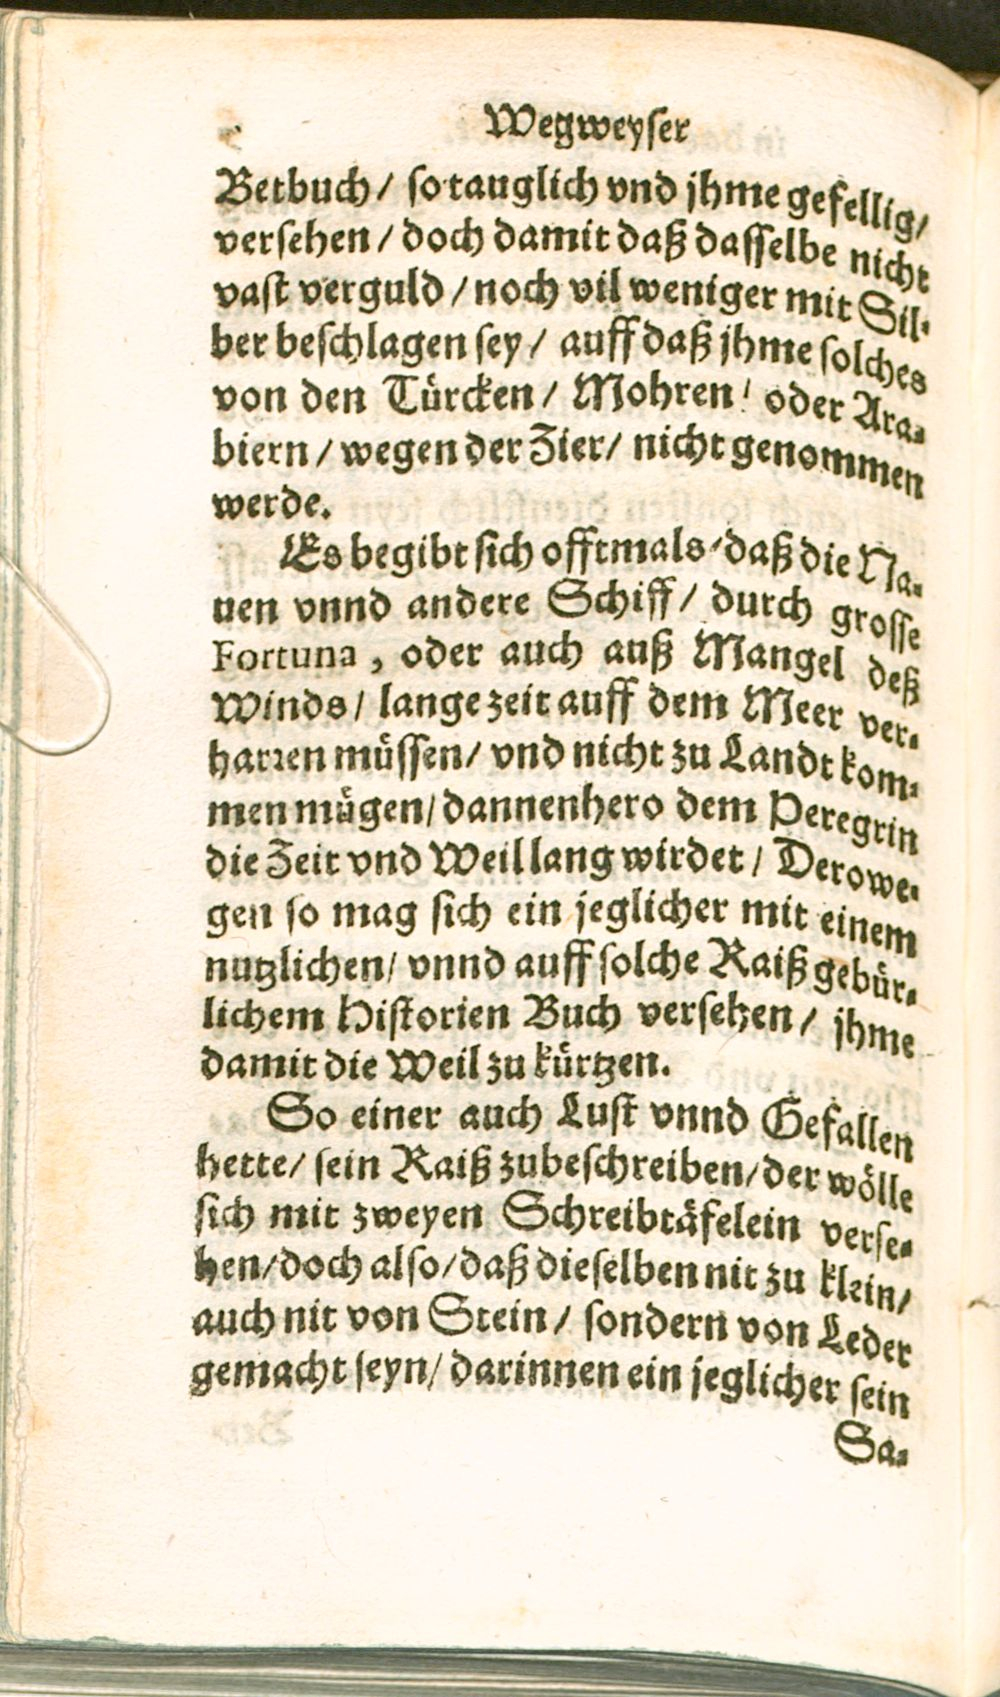 Wegweyſer
Betbuch/ ſo tauglich vnd jhme gefellig/
verſehen/ doch damit daß daſſelbe nicht
vaſt verguld/ noch vil weniger mit Sil⸗
ber beſchlagen ſey/ auff daß jhme ſolches
von den Tuͤrcken/ Mohren/ oder Ara⸗
biern/ wegen der Zier/ nicht genommen
werde.
Es begibt ſich offtmals/ daß die Na⸗
uen vnnd andere Schiff/ durch groſſe
Fortuna, oder auch auß Mangel deß
Winds/ lange zeit auff dem Meer ver⸗
harꝛen muͤſſen/ vnd nicht zu Landt kom⸗
men muͤgen/ dannenhero dem Peregrin
die Zeit vnd Weil lang wirdet/ Derowe⸗
gen ſo mag ſich ein jeglicher mit einem
nutzlichen/ vnnd auff ſolche Raiß gebuͤr⸗
lichem Hiſtorien Buch verſehen/ jhme
damit die Weil zu kuͤrtzen.
So einer auch Luſt vnnd Gefallen
hette/ ſein Raiß zubeſchreiben/ der woͤlle
ſich mit zweyen Schreibtaͤfelein verſe⸗
hen/ doch alſo/ daß dieſelben nit zu klein/
auch nit von Stein/ ſondern von Leder
gemacht ſeyn/ darinnen ein jeglicher ſein
Sa⸗